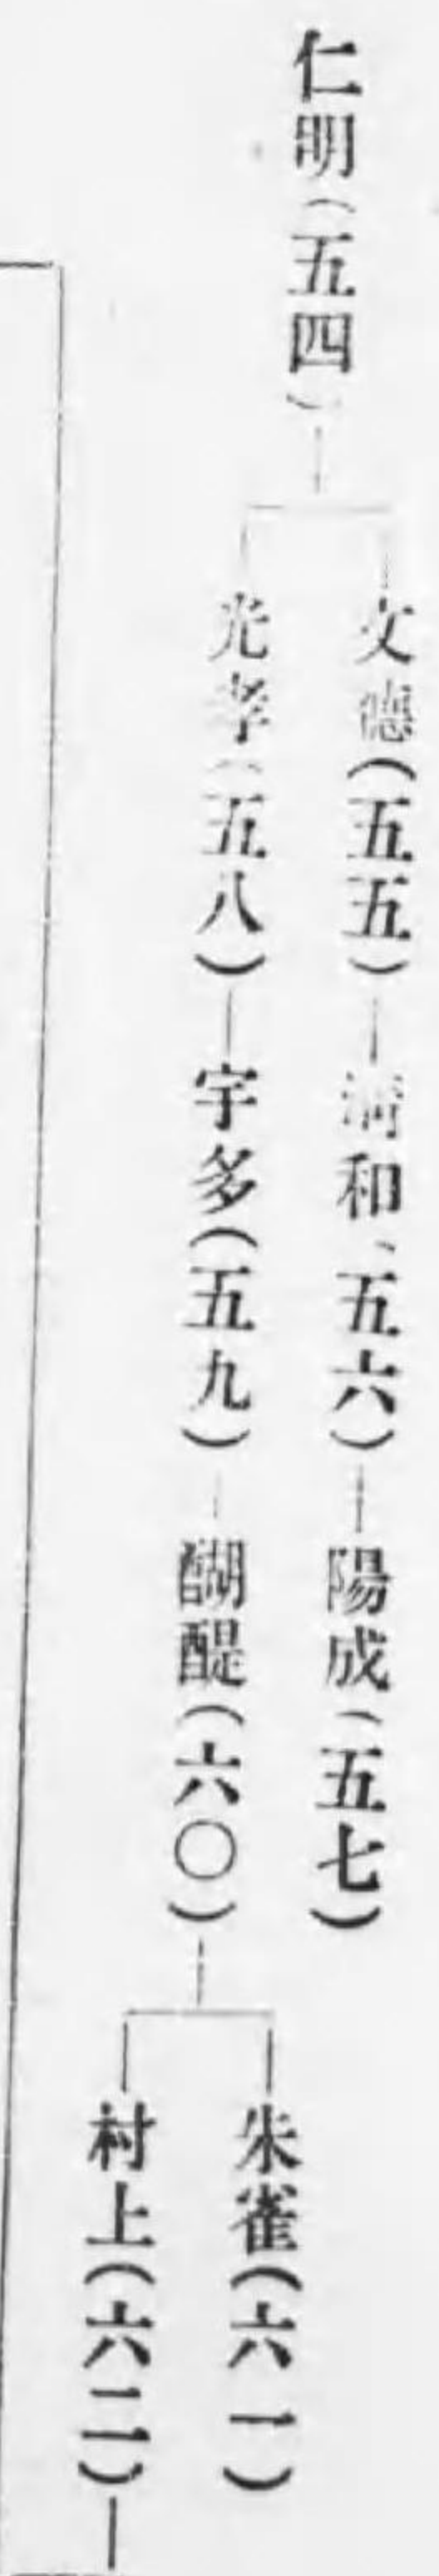 仁明(五四)
文德(五五)
清和(五六)
陽成(五七)
光孝(五八)
宇多(五九)
醍醐(六〇)
朱雀(六一)
村上(六二)